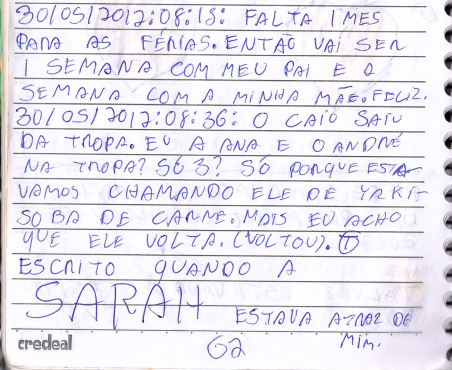 30/05/2012:08:18: FALTA 1 MES
PARA AS FÉRIAS. ENTÃO VAI SER
1 SEMANA COM MEU PAI E A
SEMANA COM A MINHA MÃE. FELIZ.
30/05/2012:08:36: O CAIO SAIU
DA TROPA. EU A ANA E O ANDRÉ
NA TROPA? SÓ 3? SÓ PORQUE ESTA-
VAMOS CHAMANDO ELE DE YAKI-
SOBA DE CARNE. MAIS EU ACHO
QUE ELE VOLTA. (VOLTOU). T
ESCRITO QUANDO A
SARAH ESTAVA ATRAZ DE
MIM.
credeal
62